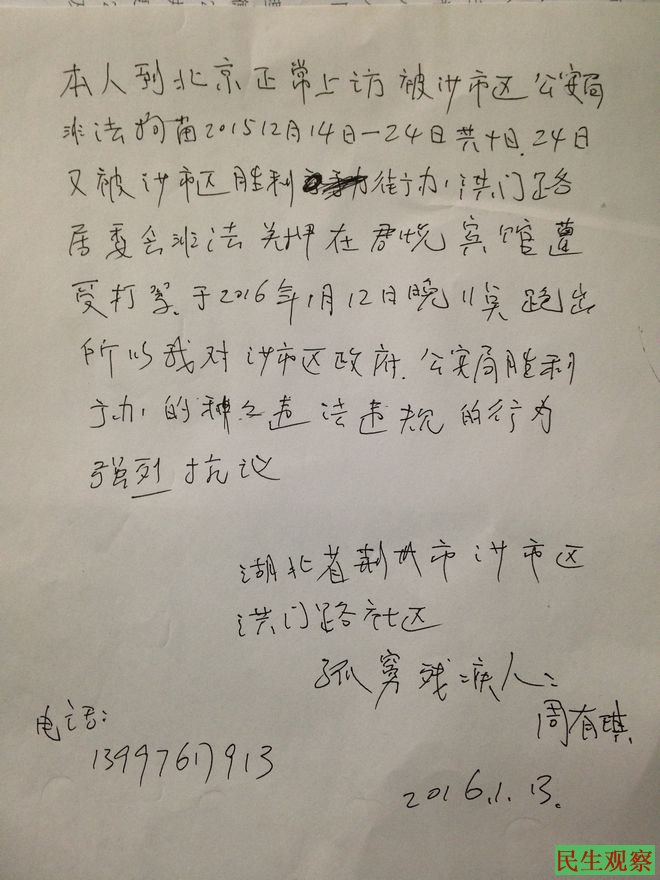 本人到北京正常上访被沙市区公安局
非法拘留2015 12月14日一24日共十日.24日
又被沙市区胜利街办洪门路
居委会非法关押在君悦宾馆遭
受打骂.于2016年1月12日晚11点跑出
所以我对沙市区政府.公安局胜利
街办的种种违法违规的行为
强烈抗议
湖北省荆州市沙市区
洪门路社区
孤穷残疾人:
周有琪
电话:
13997617913
2016.1.13.
民生观察